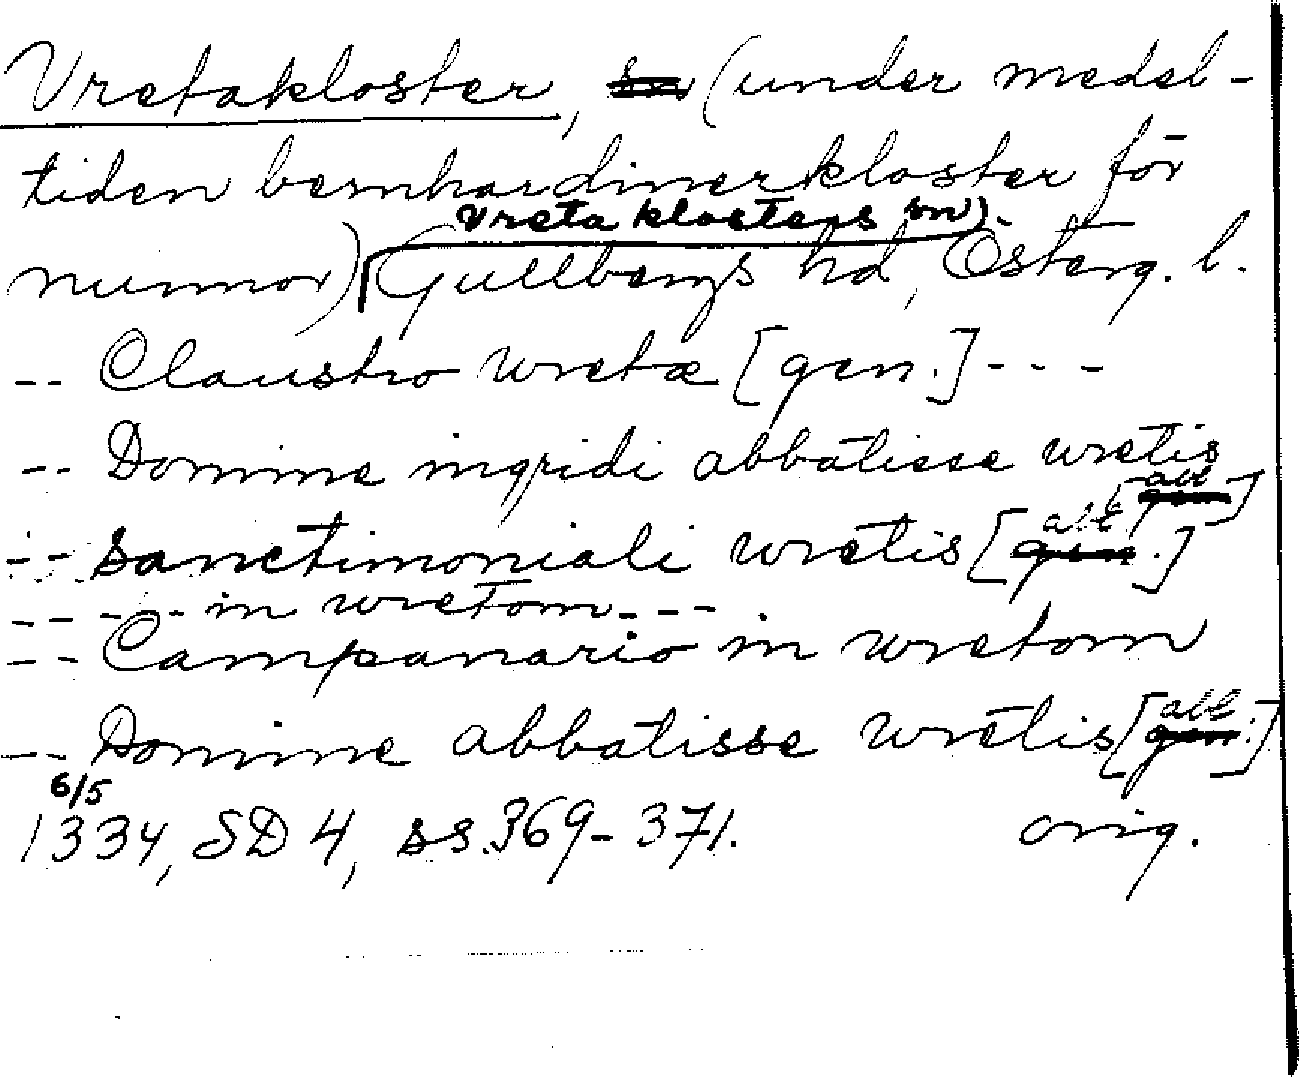 Vretakloster, sn (under medel-
tiden bernhardinerkloster för
Vreta klosters sn).
nunnor) Gullbergs hd, Österg. l.
-- Claustro wretæ [gen.] ---
-- Domine ingridi abbatisse wretis
[abl gen]
-- Sanctimoniali wretis [abl gen.]
----- in wretom ---.
-- Campanario in wretom
-- Domine abbatisse wretis [abl gen.]
6/5
1334, SD 4, ss. 369-371. orig.